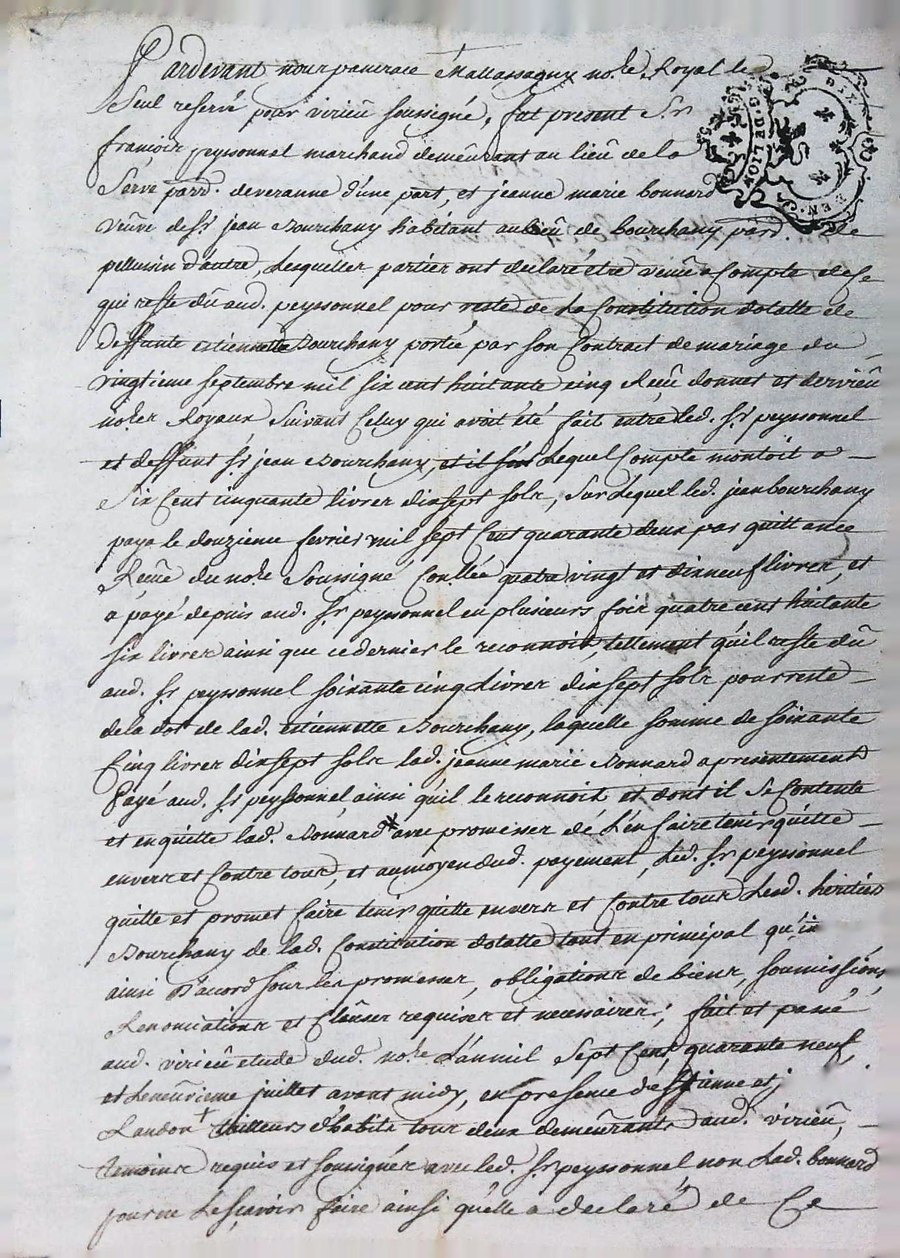 Pardevant nous pancrace Mallassagny no.re Royal le
Seul reservé pour virieû soussigné, fut present Sr
françois peyssonnel marchand demeûrant au lieû de la
Serve parr. de veranne d'une part, et jeanne marie bonnard
veuve de Sr jean Bourchany habitant au lieû de bourchany parr. de
pellussin d'autre, Lesquelles parties ont declaré être venû a Compte de Ce
qui reste dû aud. peyssonnel pour reste de La Constitution dotalle de
deffunte estiennette Bourchany portée par son Contract de mariage du
vingtieme septembre mil six cent huitante cinq Reçû donnet et dervieû
no.res Royaux Suivant Celuy qui avoit été fait entre led. Sr peyssonnel
et deffunt Sr jean Bourchany, Lequel Compte montoit a
Six Cent cinquante livres dixsept sols, Sur Lequel led. jean bourchany
paya le douzieme fevrier mil sept Cent quarante deux par quittance
Reçüe du no.re Soussigné Conllée quatre vingt et dixneuf livres, et
a payé depuis aud. Sr peyssonnel en plusieurs fois quatre cent huitante
six livres ainsi que ce dernier le reconnoit, tellement qu'il reste dû
aud. Sr peyssonnel soixante cinq Livres dixsept sols pour reste
de la dot de lad. estiennette Bourchany, laquelle somme de soixante
Cinq livres dixsept sols lad. jeanne marie Bonnard a presentement
Payé aud. Sr peyssonnel ainsi quil le reconnoit et dont il Se Contente
et en quitte lad. Bonnard avec promesses de L'en faire tenir quitte
envers et Contre tous, et au moyen dud. payement, Led. Sr peyssonnel
quitte et promet faire tenir quitte envers et Contre tous Lesd. heritiers
Bourchany de lad. Constitution dotalle tant en principal qu'
ainsi D'accord sous les promesses, obligations de biens, soumissions,
Renonciations et Clauses requises et necessaires; fait et passé
aud. virieû etude dud. no.re L'an mil Sept Cent quarante neuf,
et Le neuvieme juillet avant midy, en presence de
Landon tailleurs d'habits tous deux demeûrants aud. virieû,
temoins requis et soussignés avec led. Sr peyssonnel non Lad. bonnard
pour ne Le sçavoir faire ainsi qu'elle a declaré de Ce